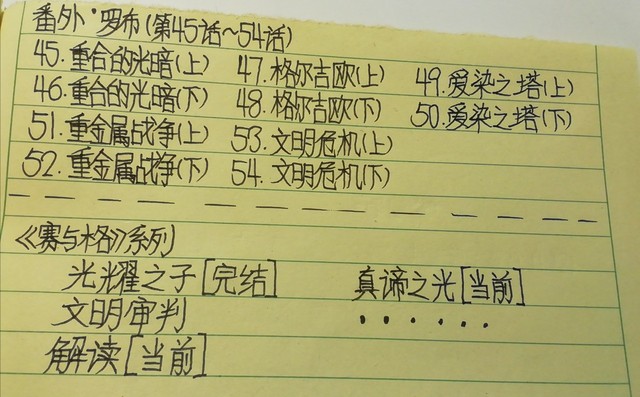 番外·罗布(第45话~54话)
45.重合的光暗(上) 47.格尔吉欧(上) 49.爱染之塔(上)
46.重合的光暗(下) 48.格尔吉欧(下) 50.爱染之塔(下)
51.重金属战争(上) 53.文明危机(上)
52.重金属战争(下) 54.文明危机(下)
《赛与格》系列
光耀之子[完结] 真谛之光[当前]
文明审判 ······
解读[当前]